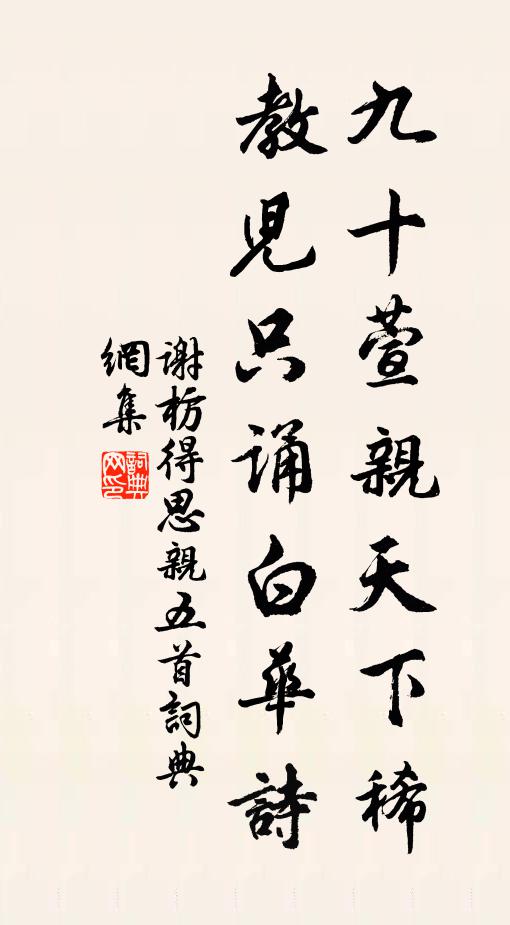 九十萱親天下稀
教兒只誦白華詩
謝枋得思親五首詞典
網集
詞典網印